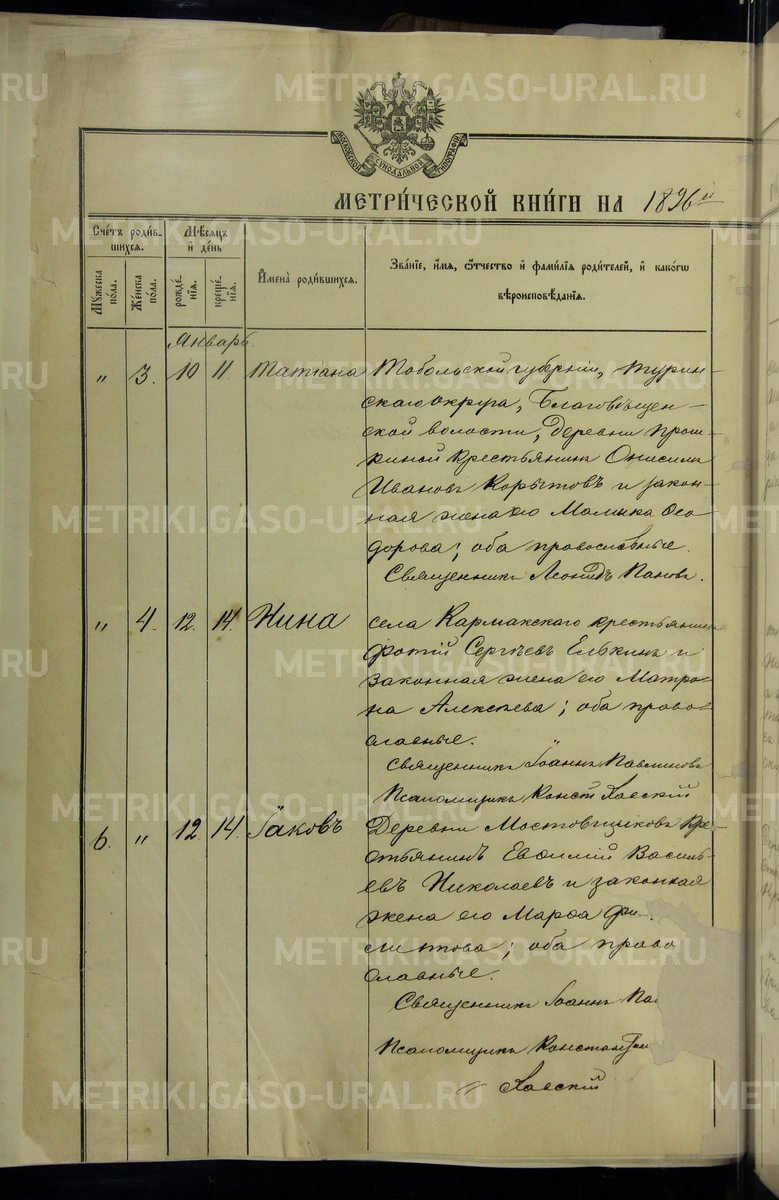 МОСКОВСКОЙ СѴНОДАЛЬНОЙ ТИПОГРАФІИ
МЕТРИ́ЧЕСКОЙ КНИ́ГИ НА 1896й
Сче́тъ роди́в-
шихся.
Мѣ́сяцъ
и҆ де́нь
Му́жеска
по́ла.
Же́нска
по́ла.
рожде́-
нїѧ.
креще́-
нїѧ.
И҆мена̀ роди́вшихся.
Зва́нїе, и҆́мя, ѻ҆́тчество и҆ фами́лїя роди́телей, и҆ како́гѡ
вѣроисповѣ́данїя.
Январь.
" 3. 10 11. Татіана
Тобольской губерніи, Турин-
скаго округа, Благовѣщен-
ской волости, деревни Прош-
киной крестьянинъ Онисимъ
Ивановъ Корытовъ и закон-
ная жена его Ѳео-
дорова; оба православные.
Священникъ Леонидъ Пановъ.
" 4. 12. 14. Нина
села Кармакскаго крестьянинъ
Фотій Сергѣевъ Елькинъ и
законная жена его Матро-
на Алексѣева; оба право-
славные.
Священникъ Іоаннъ
Псаломщикъ Конст.
6. " 12 14. Іаковъ
Деревни Мостовщиковъ кре-
стьянинъ Евѳимій Василь-
евъ Николаевъ и законная
жена его Марѳа Фи-
ова; оба право
славные.
Священникъ Іоаннъ Па
Псаломщикъ Константин
METRIKI.GASO-URAL.RU